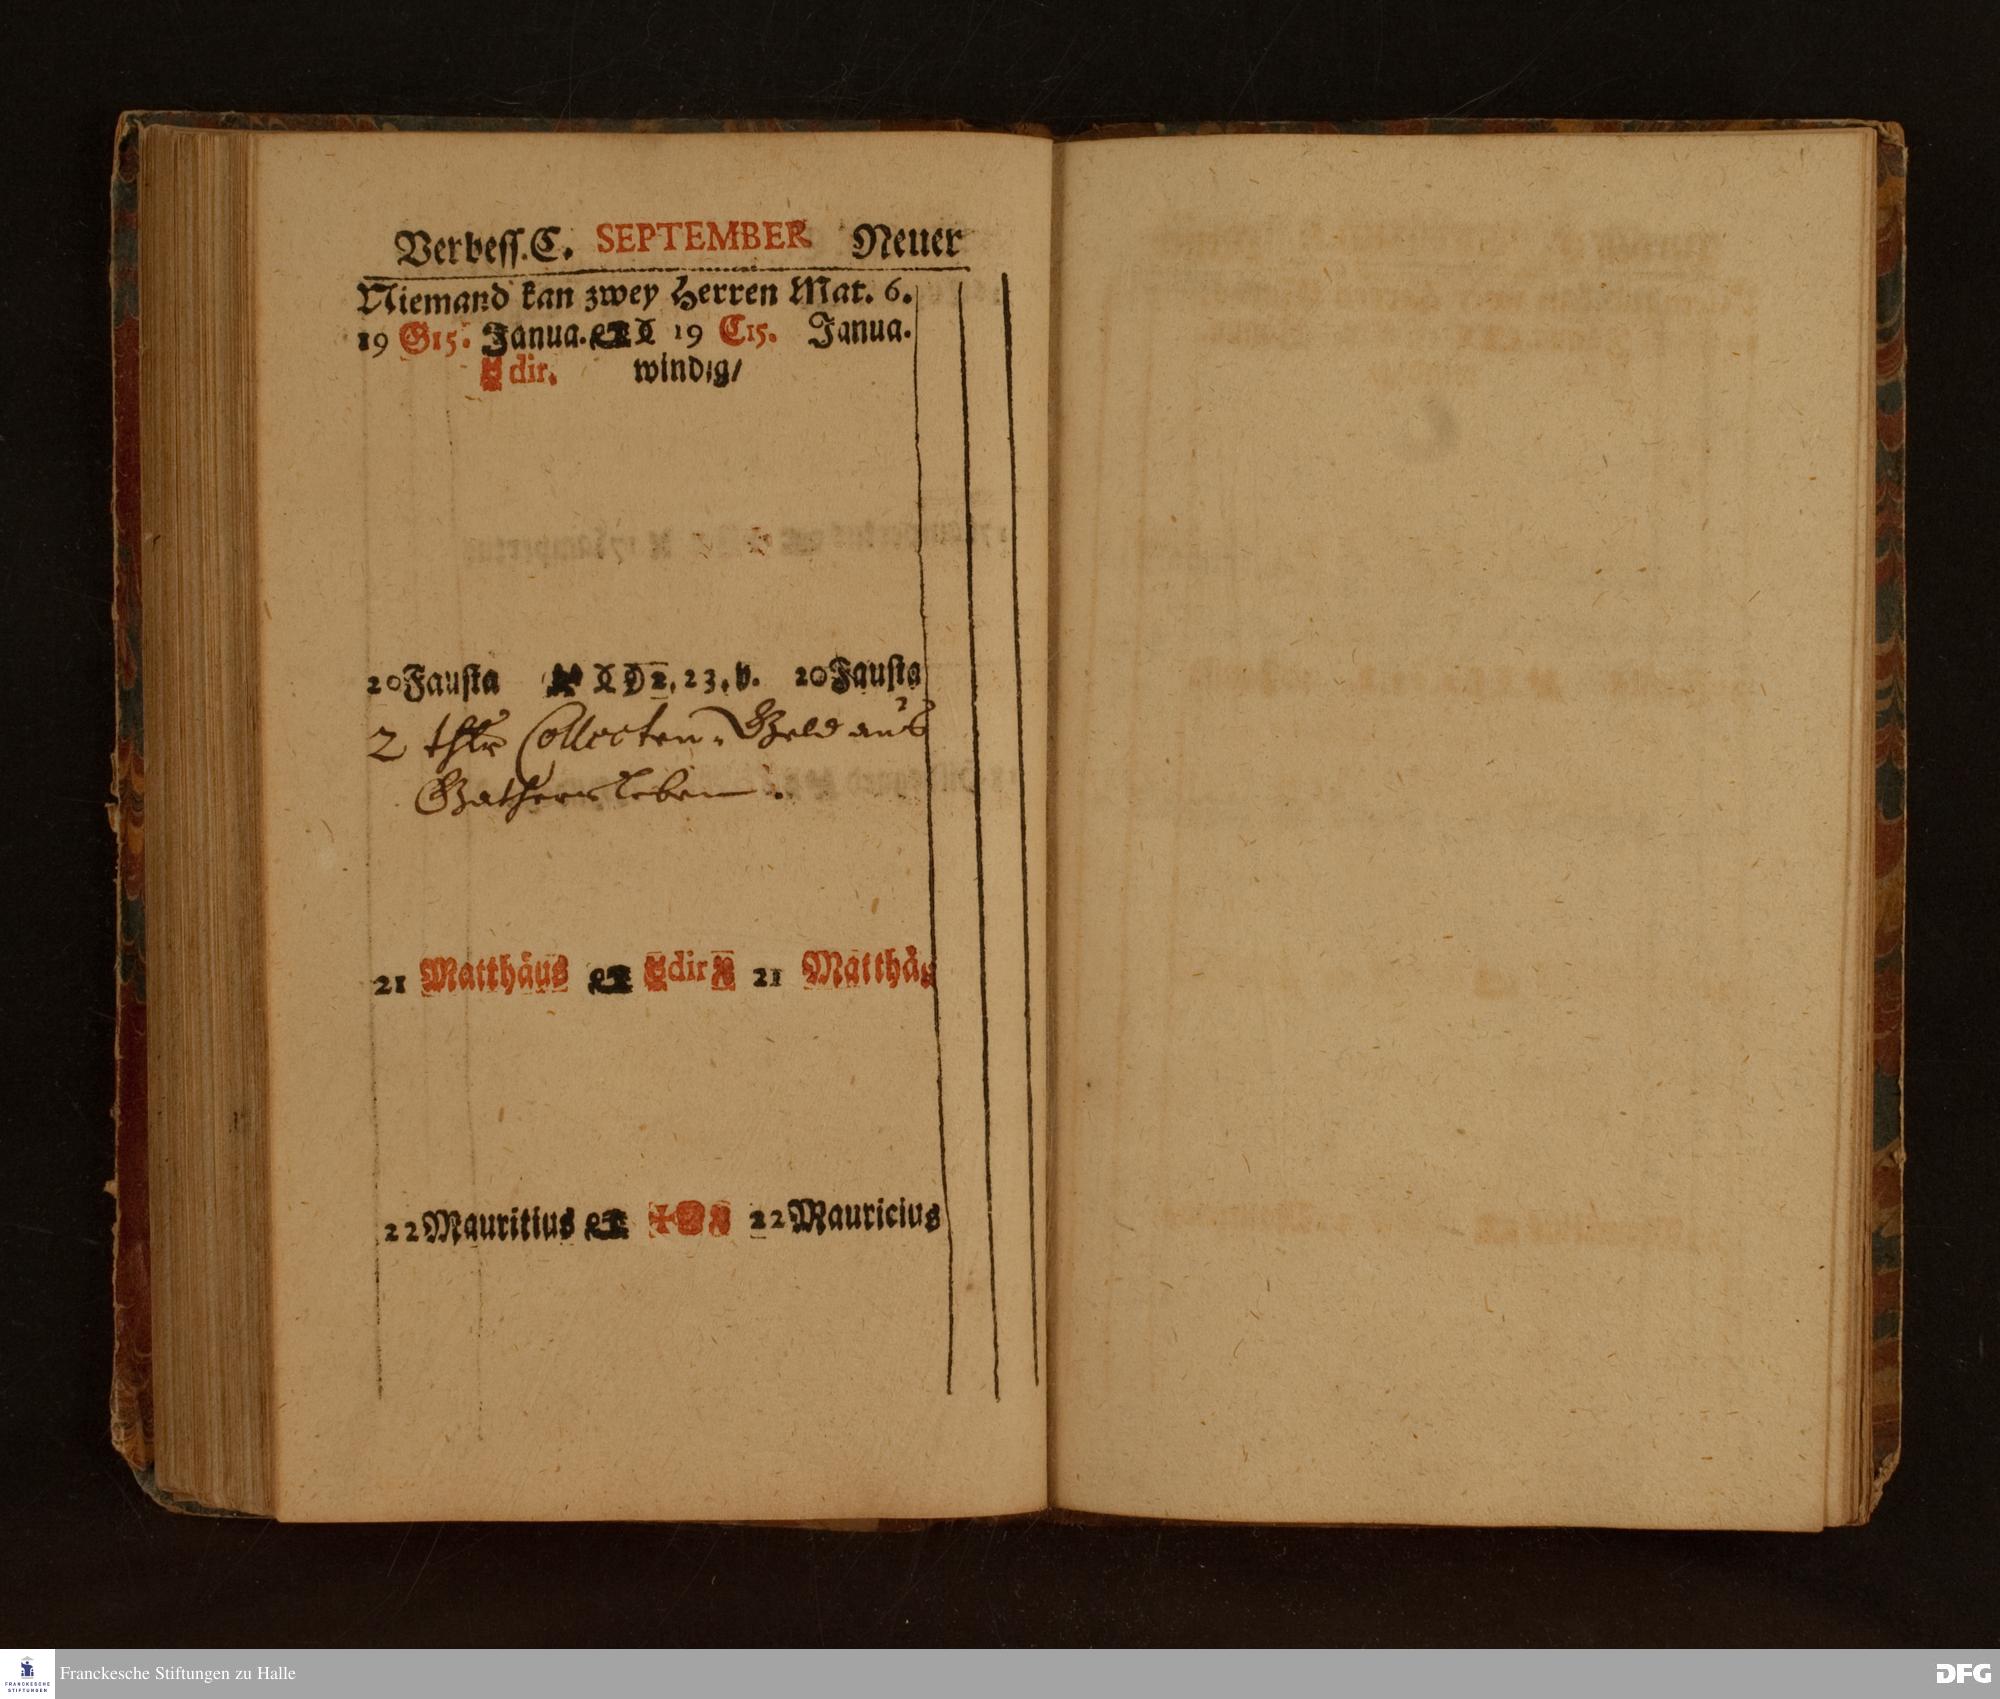 Verbeſſ. C. SEPTEMBER Neuer
Niemand kan zwey Herren Mat. 6.
19 G15. Janua. 19 C15. Janua.
dir. windig/
20 Fauſta 2, 23. v. 20 Fauſta
2 thlr Collecten-Geld aus
Gatherſleben.
21 Matthäus dir 21 Matthäs
22 Mauritius 22 Mauricius
Franckesche Stiftungen zu Halle
FRANCKESCHE
STIFTUNGEN
DFG